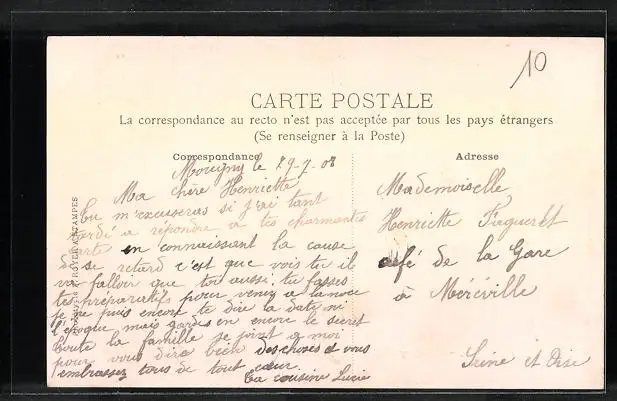 10
CARTE POSTALE
La correspondance au recto n'est pas acceptée par tous les pays étrangers
(Se renseigner à la Poste)
Correspondance
le 29-7-08
Ma chère Henriette
tu m'excuseras si j'ai tant
tardé a repondre a tes charmantes
carte en connaissant la cause
de se retard c'est que vois tu il
va falloir que toi aussi tu fasses
tes préparatifs pour venir a la noce
je ne puis encore te dire la date ni
l'époque mais gardes en encore le secret
toute la famille se joint a moi
pour vous dire bien des choses et vous
embrassez tous de tout cœur
Ta cousine Lucie
Adresse
Mademoiselle
Henriette
café de la Gare
à Méréville
Seine et Oise